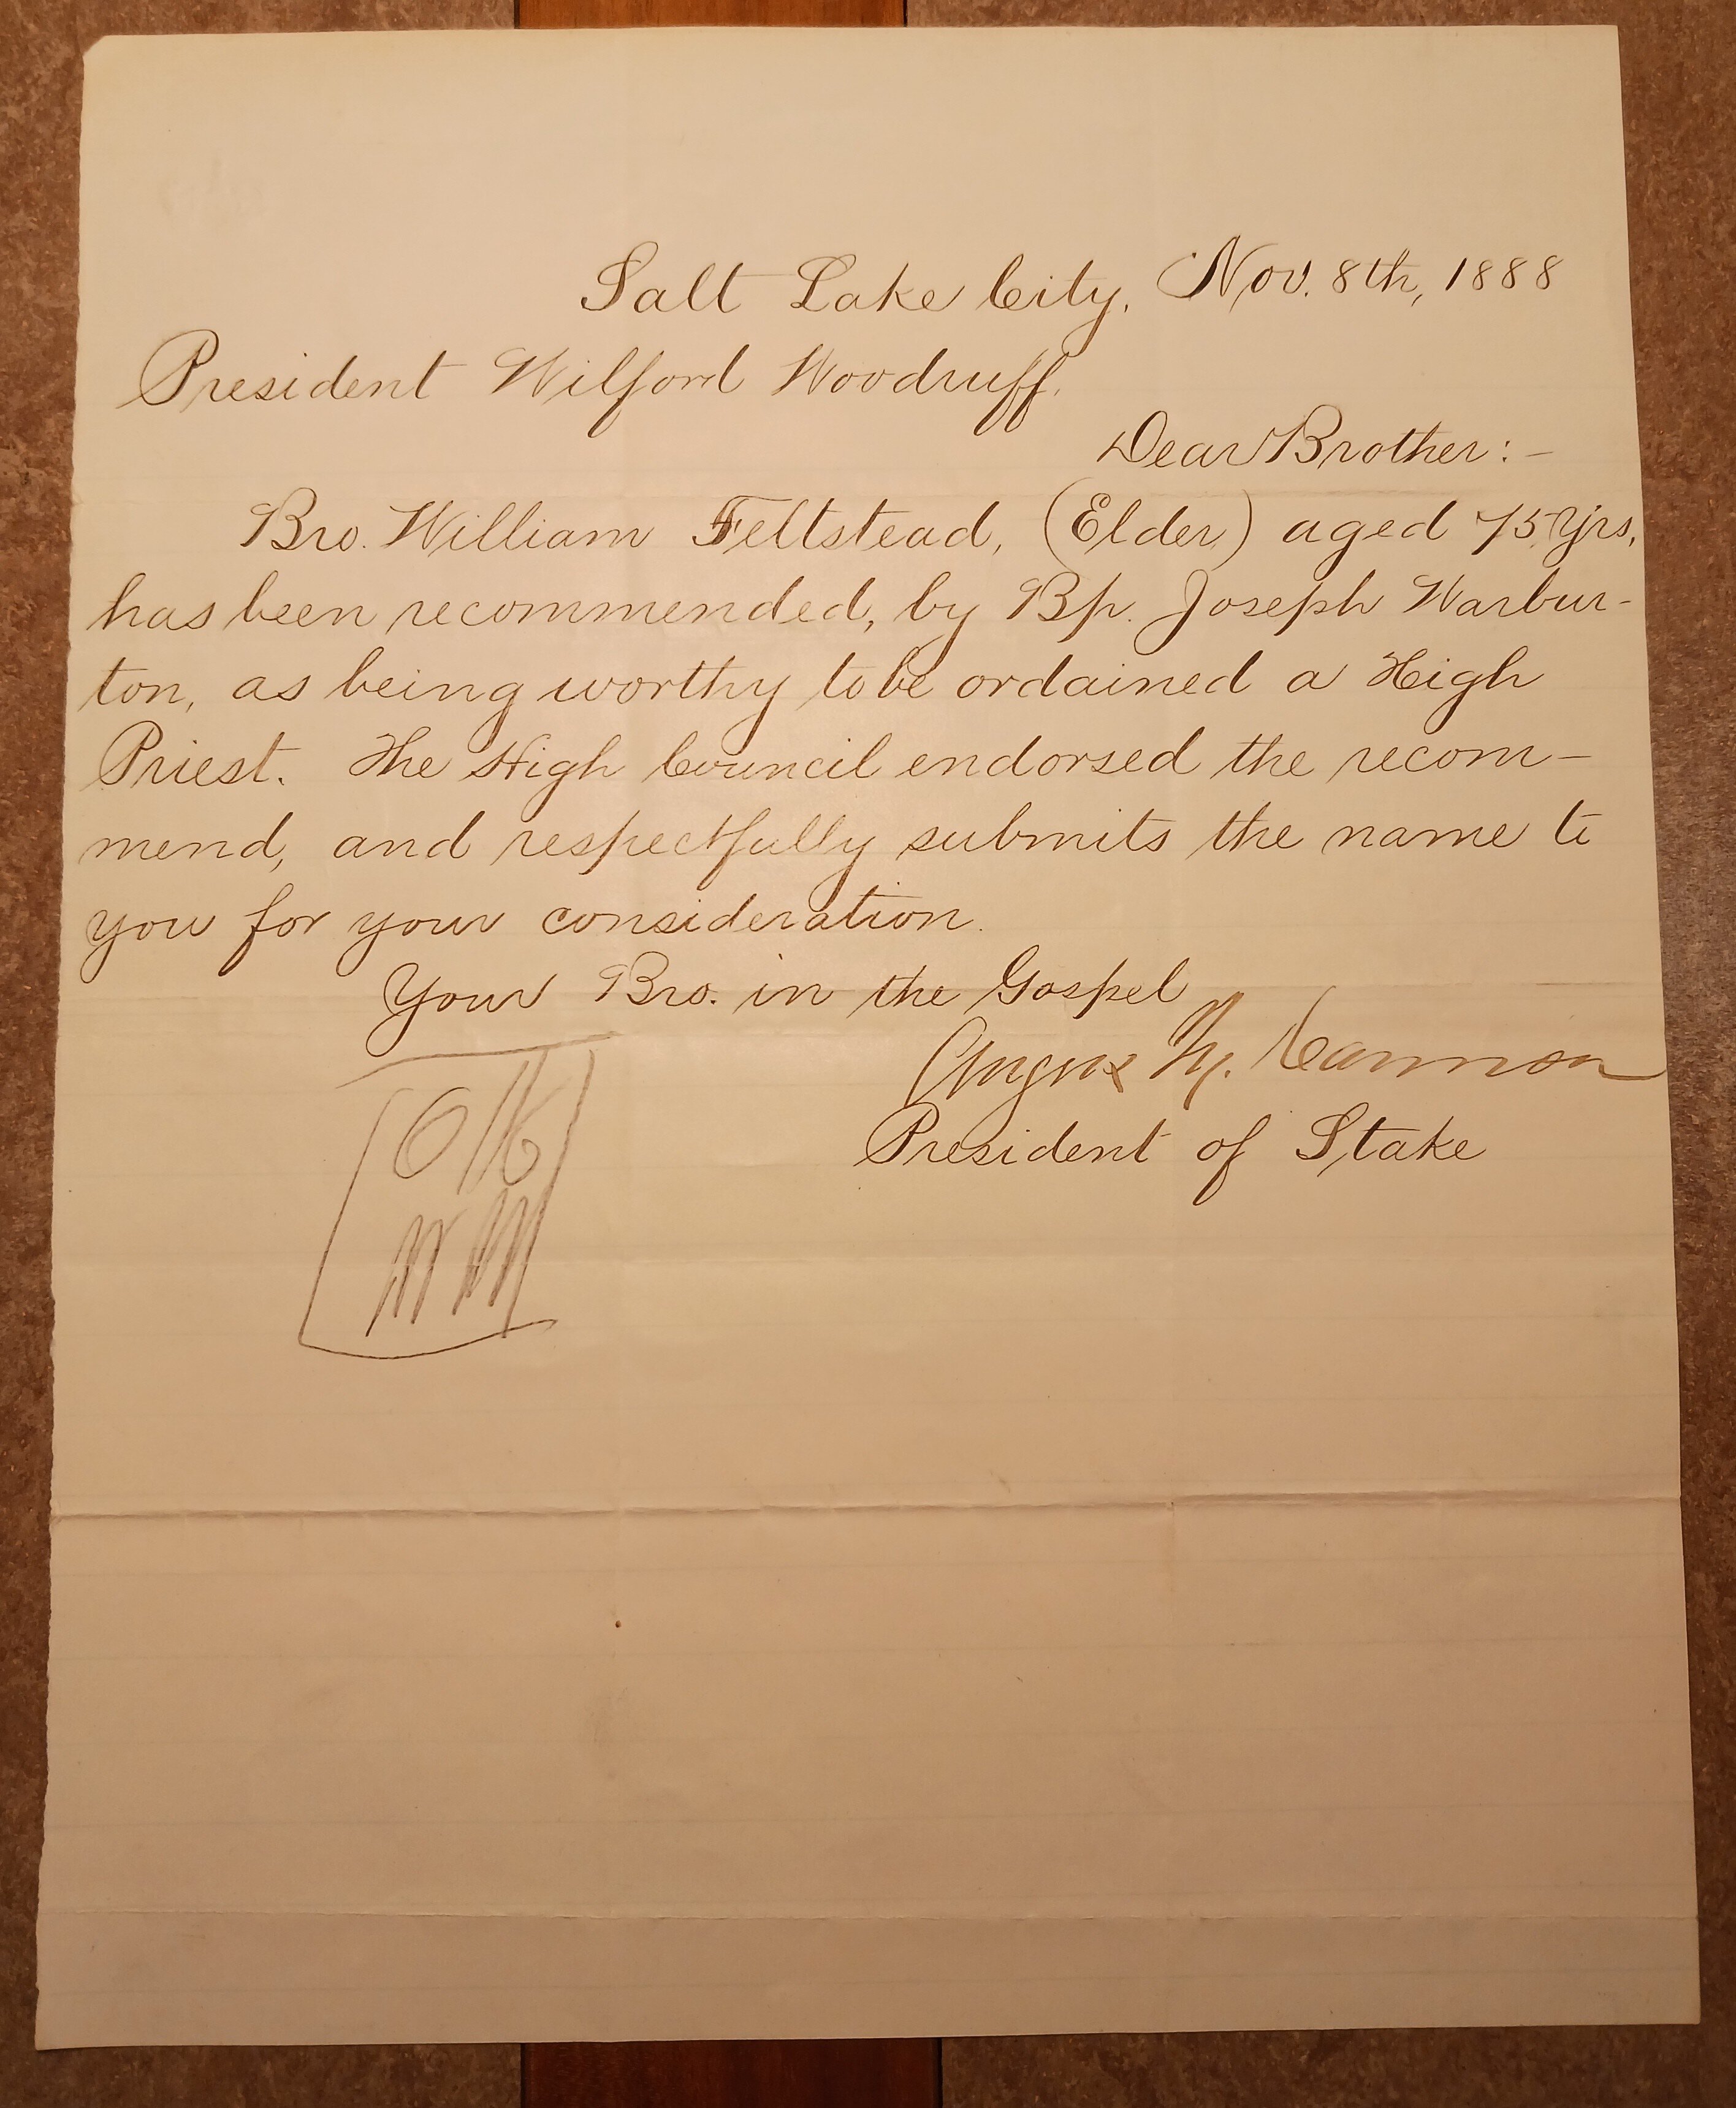 Salt Lake City, Nov. 8th, 1888
President Wilford Woodruff.
Dear Brother:-
Bro. William Feltstead, (Elder) aged 75 yrs,
has been recommended, by Bp. Joseph Warbur-
ton, as being worthy to be ordained a High
Priest. The High Council endorsed the recom-
mend, and respectfully submits the name to
you for your consideration.
Your Bro. in the Gospel
Angus M. Cannon
President of Stake
OK
WW